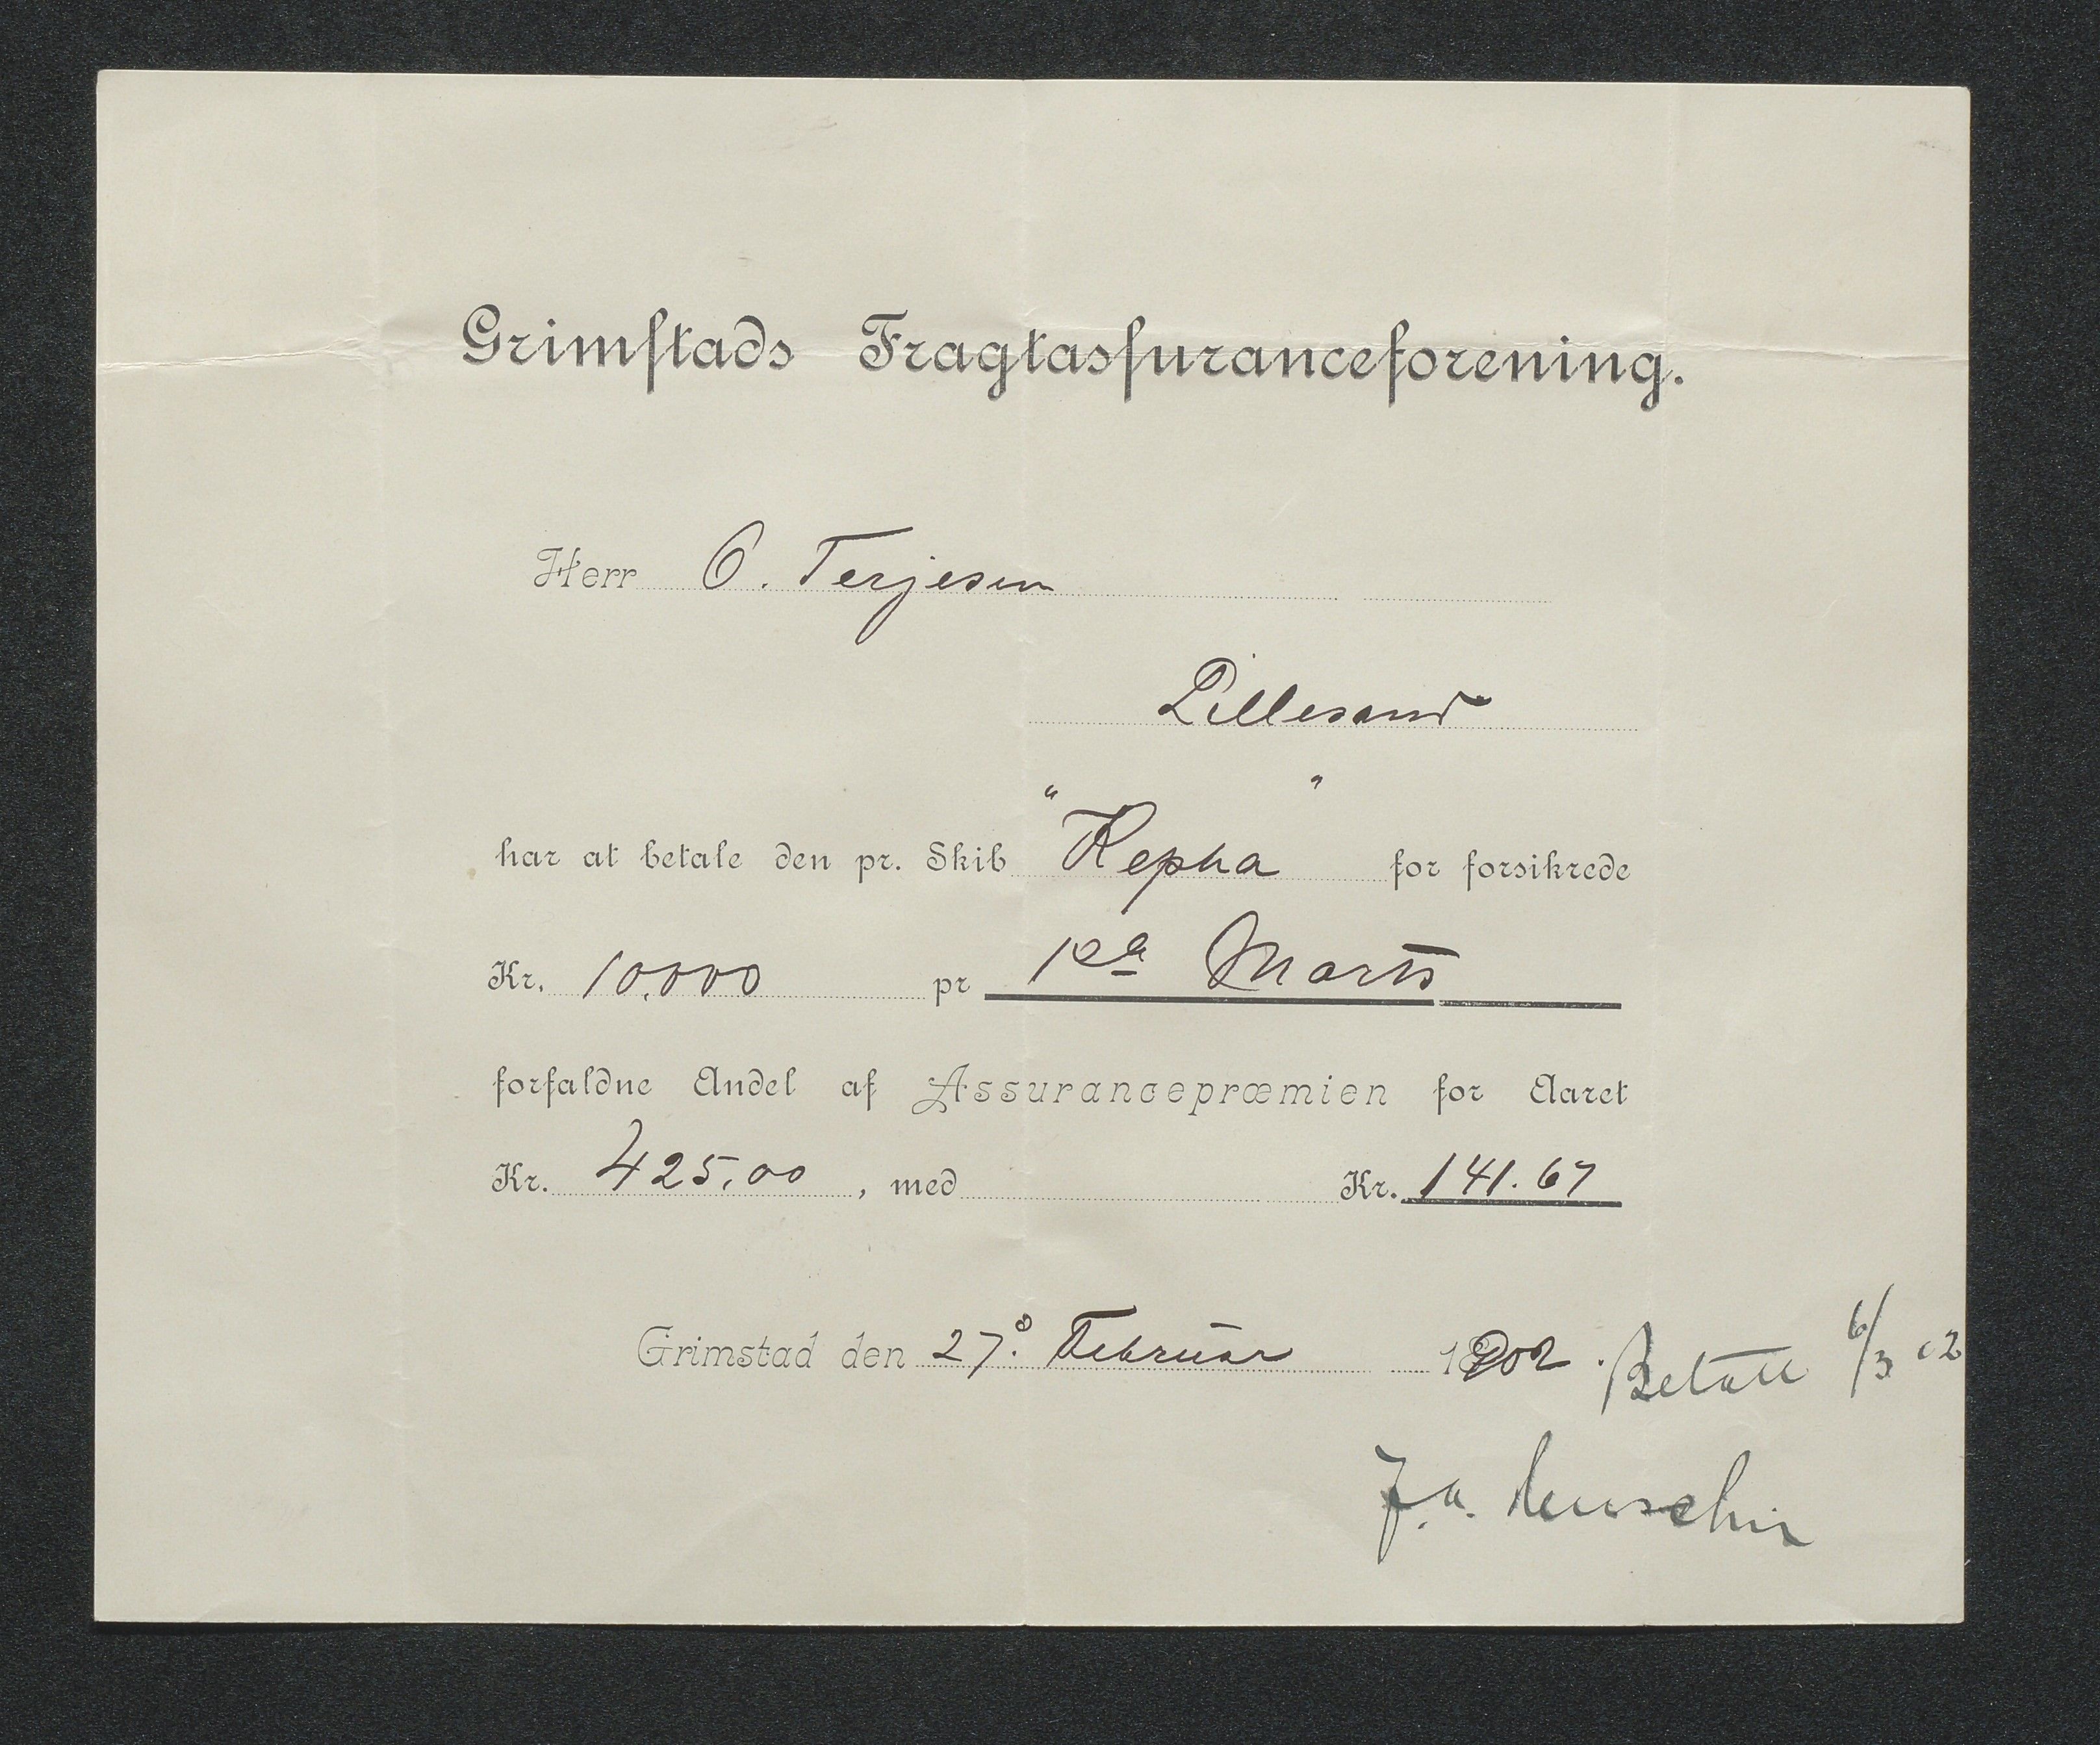 Grimstads Fragtassuranceforening.
Herr O. Terjesen
Lillesand
har at betale den pr. Skib "Kepha" for forsikrede
Kr. 10.000 pr 1ste Marts
forfaldne Andel af Assurancepræmien for Aaret
Kr. 425,00, med Kr. 141.67
Grimstad den 27d Februar 1902. Betalt 6/3 02